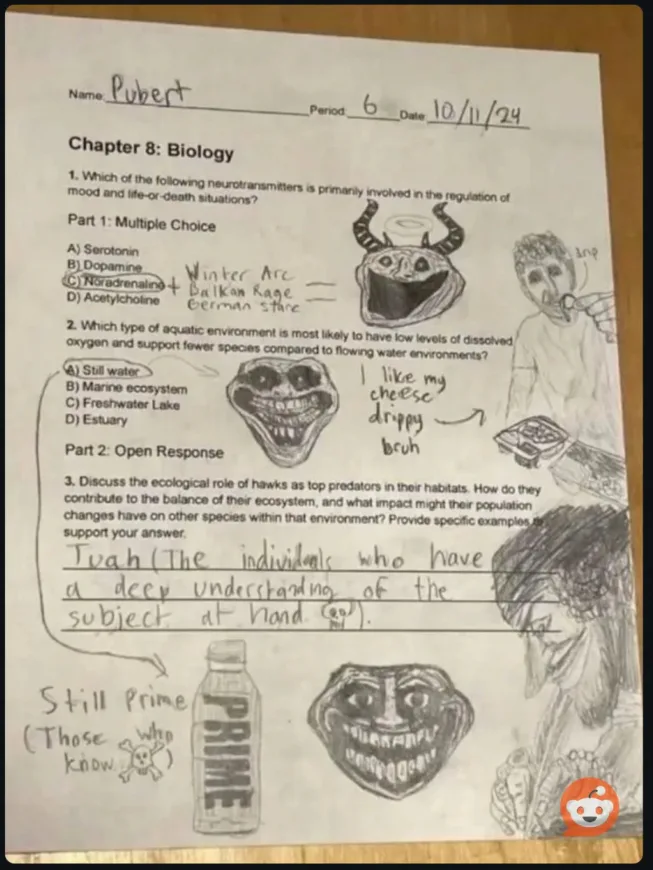 Name: Pubert Period: 6 Date: 10/11/24
Chapter 8: Biology
1. Which of the following neurotransmitters is primarily involved in the regulation of
mood and life-or-death situations?
Part 1: Multiple Choice
A) Serotonin
B) Dopamine
C) Noradrenaline + Winter Arc
Balkan Rage =
German stare
D) Acetylcholine
2. Which type of aquatic environment is most likely to have low levels of dissolved
oxygen and support fewer species compared to flowing water environments?
A) Still water
B) Marine ecosystem
C) Freshwater Lake
D) Estuary
I like my
cheese
drippy
bruh
Part 2: Open Response
3. Discuss the ecological role of hawks as top predators in their habitats. How do they
contribute to the balance of their ecosystem, and what impact might their population
changes have on other species within that environment? Provide specific examples to
support your answer.
Tuah (The individuals who have
a deep understanding of the
subject at hand ).
Still Prime
(Those who
know )
PRIME